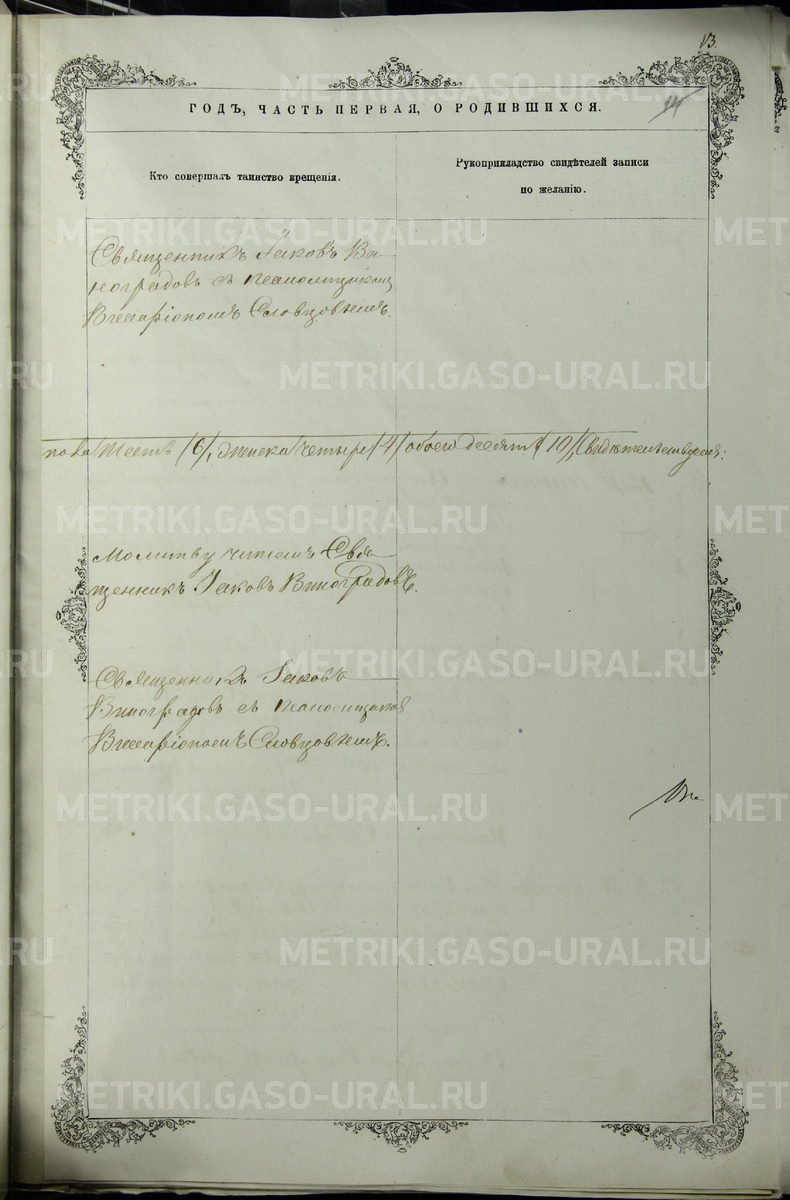 13.
14
ГОДЪ, ЧАСТЬ ПЕРВАЯ, О РОДИВШИХСЯ.
Кто совершалъ таинство крещенія.
Рукоприкладство свидѣтелей записи
по желанію.
Священникъ Іаковъ Ви-
ноградовъ съ псаломщикомъ
Виссаріономъ Словцовымъ.
пола шесть /6/, женска четыре /4/ обоего десять /10/, Свидѣтельствуемъ:
Молитву читалъ Свя-
щенникъ Іаковъ Виноградовъ.
Священникъ Іаковъ
Виноградовъ съ псаломщикомъ
Виссаріономъ Словцовымъ.
METRIKI.GASO-URAL.RU